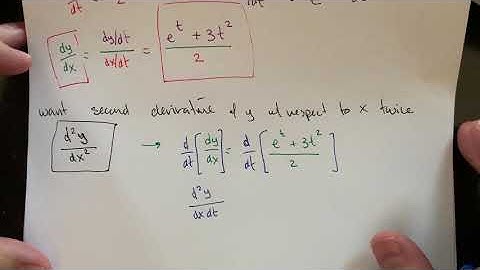 dt 2
dy/dx = dy/dt / dx/dt = e^t + 3t^2 / 2
want second derivative of y w/ respect to x twice
d^2y/dx^2 → d/dt [dy/dx] = d/dt [e^t + 3t^2 / 2]
d^2y/dxdt